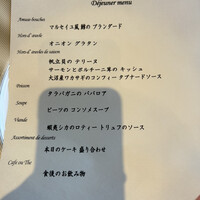 Déjeuner menu
Amuse-bouches
マルセイユ風 鱈の ブランダード
Hors-d' œuvre
オニオン グラタン
Hors-d' œuvre de saison
帆立貝の テリーヌ
サーモンとポルチーニ茸の キッシュ
大沼産ワカサギのコンフィータ タプナードソース
Poisson
タラバガニの ババロア
Soupe
ビーツの コンソメスープ
Viande
蝦夷シカのロティー トリュフのソース
Assortiment de desserts
本日のケーキ 盛り合わせ
Café ou Thé
食後のお飲み物